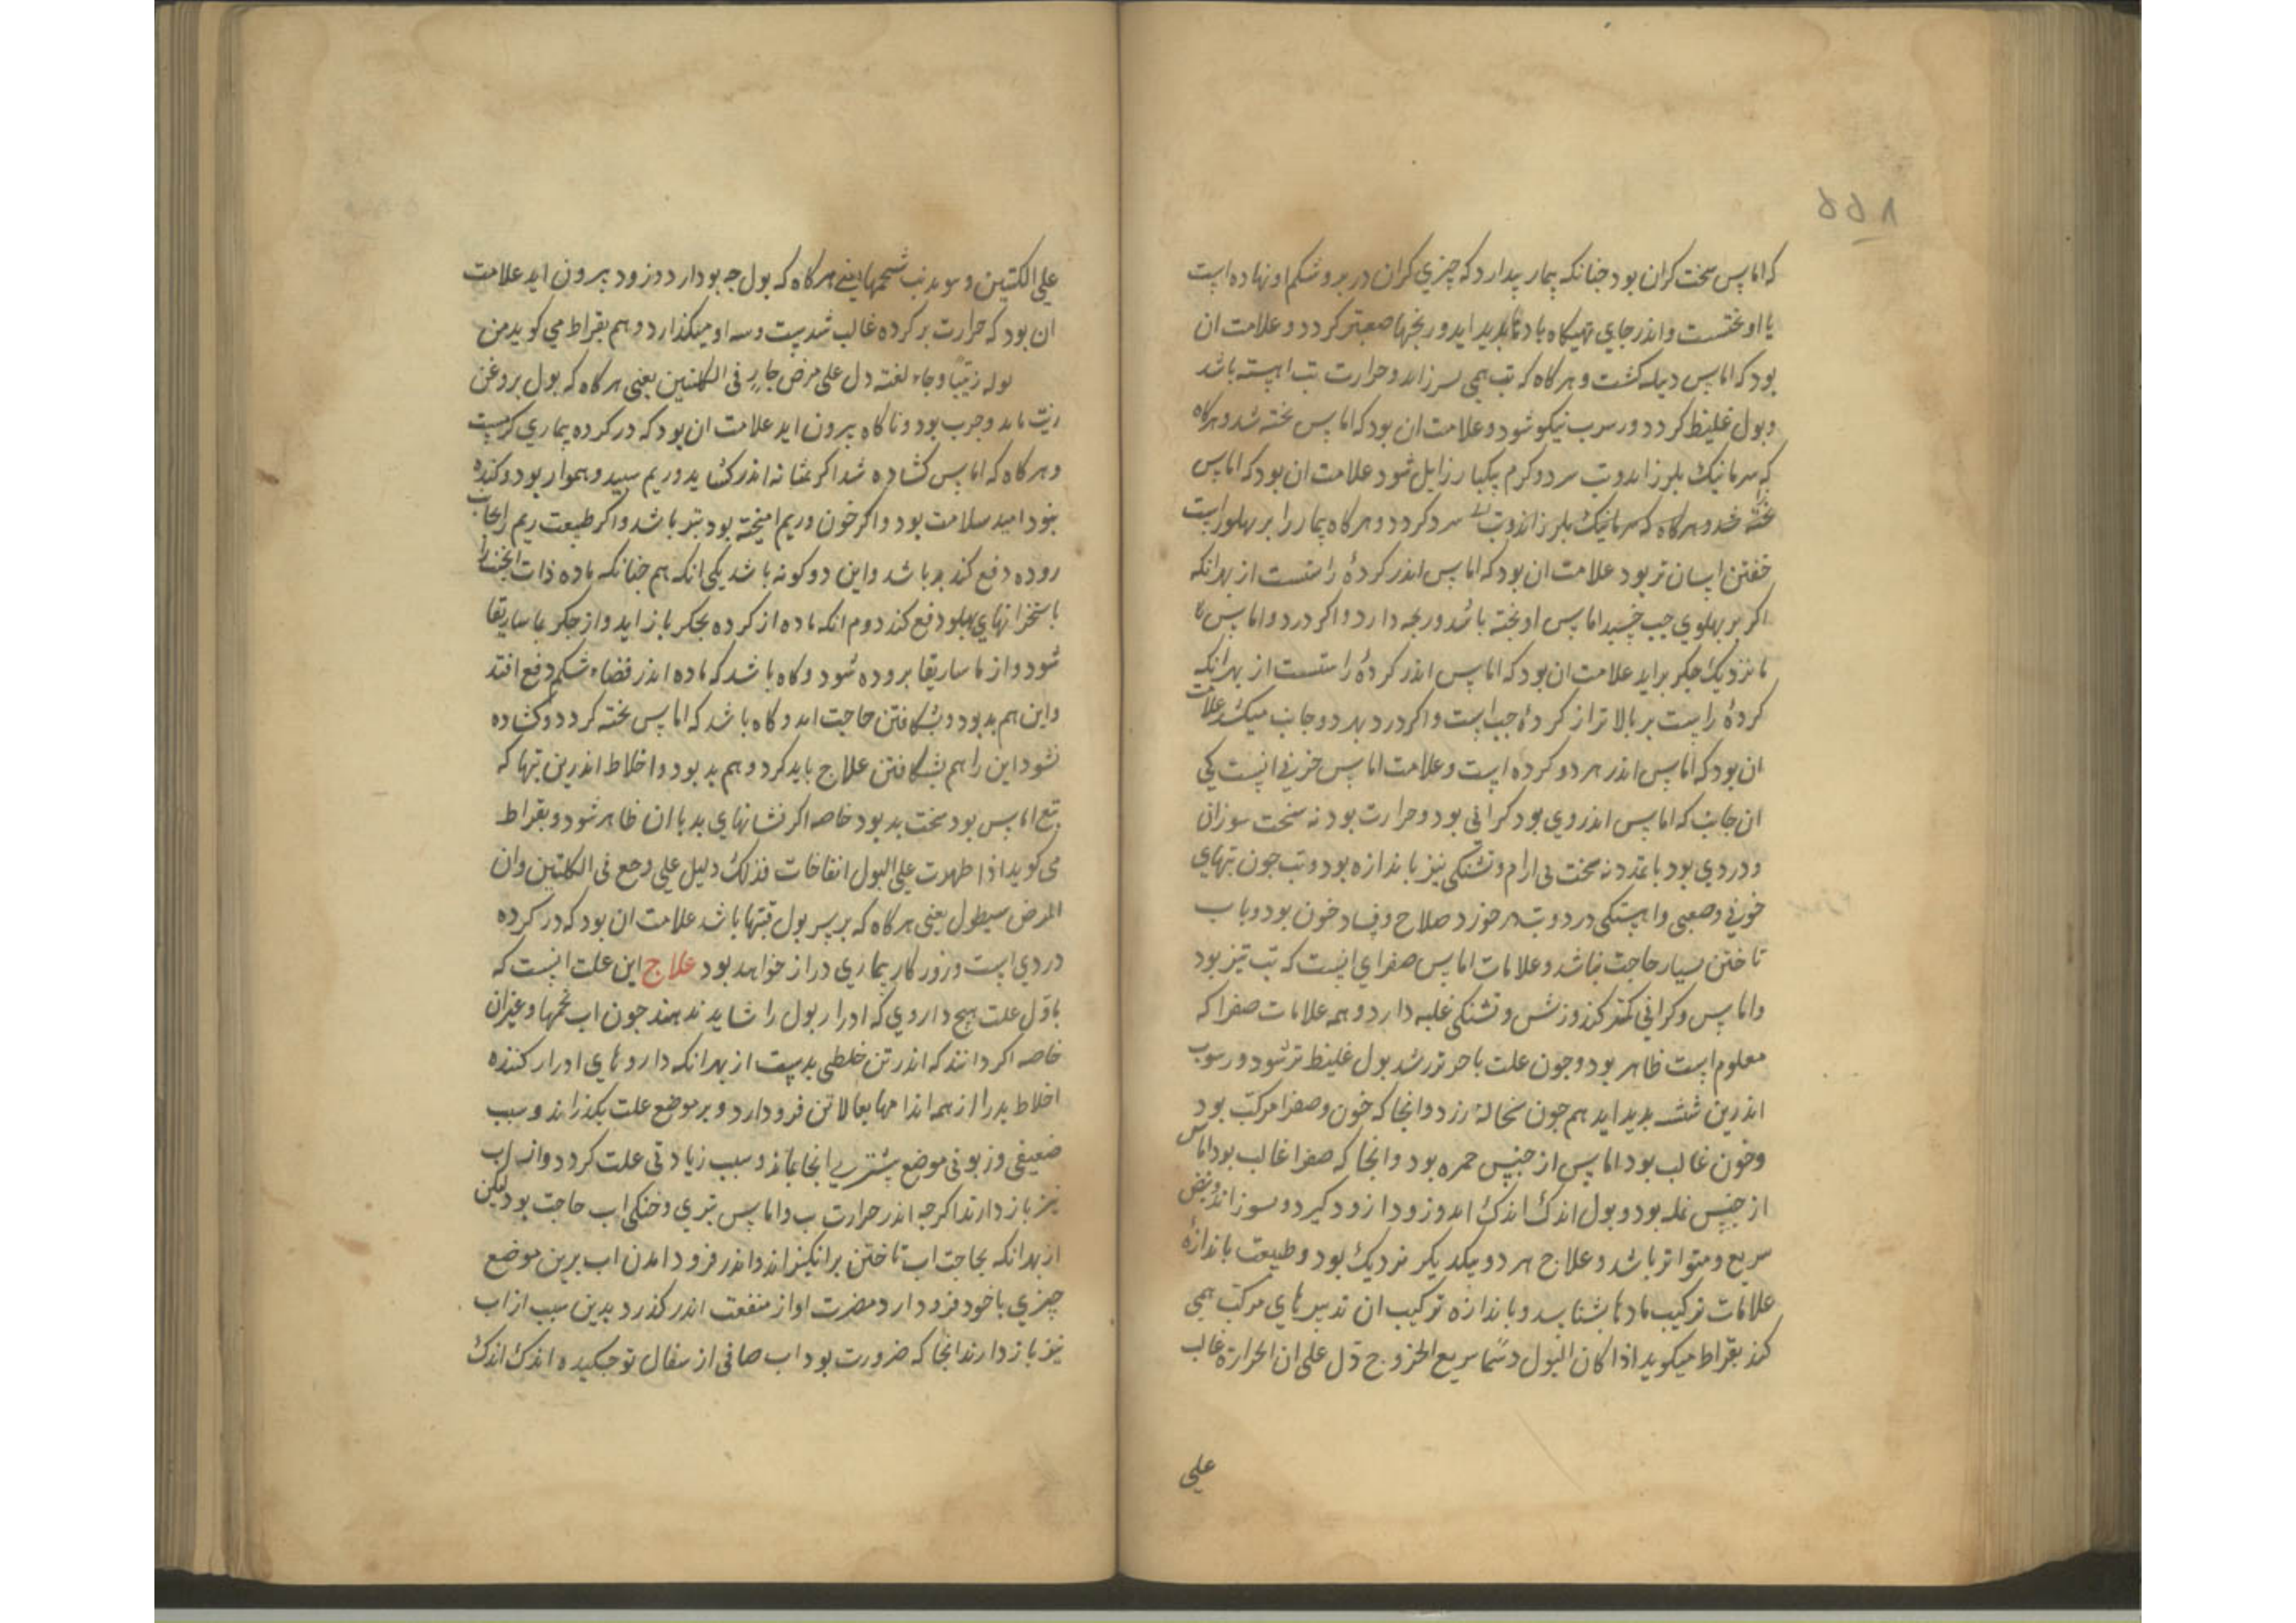 ۵۵۸
که اماس سخت کران بود جنانکه بیمار بندارد که جیزی کران در بر و شکم او نهاده است
یا اوبختست و اندر جای تهیکاه بادها بدید اید و رنجها صعبتر کردد و علامت ان
بود که اماس دبیله کشت و هرکاه که تب همی لرزاند و حرارت تب اهسته باشد
و بول غلیظ کردد و رسوب نیکو شود و علامت ان بود که اماس بخته شد و هرکاه
که سرما نیک بلرزاند و تب سرد و کرم یکبار زایل شود علامت ان بود که اماس
بخته شد و هرکاه که سرما نیک بلرزاند و تب سرد کردد و هرکاه بیمار را بر بهلو راست
خفتن اسان تر بود علامت ان بود که اماس اندر کردهٔ راستست از بهر انکه
اکر بر بهلوی جب خسبد اماس اوبخته باشد و رنجه دارد و اکر درد و اماس تا
نزدیک جکر براید علامت ان بود که اماس اندر کردهٔ راستست از بهرانکه
کردهٔ راست بر بالاتر از کردهٔ جب است و اکر درد بهر دو جانب میکشد علامت
ان بود که اماس اندر هر دو کرده است و علامت اماس خونی انست کی
ان جانب که اماس اندر وی بود کرانی بود و حرارت بود نه سخت سوزان
و دردی بود با تمدد نه سخت بی ارام و تشنکی نیز باندازه بود و تب جون تبهای
خونی و صعبی و اهستکی درد و تب در خورد صلاح و فساد خون بود و باب
تاختن بسیار حاجت نباشد و علامات اماس صفرای انست که تب تیز بود
و اماس و کرانی کمتر کند و زنش و تشنکی غلبه دارد و همه علامات صفرا که
معلوم است ظاهر بود و جون علت باخر تر رسد بول غلیظ تر شود و رسوب
اندرین شش بدید اید هم جون نخالهٔ زرد و انجا که خون و صفرا مرکب بود
و خون غالب بود اماس از جنس حمره بود و انجا که صفرا غالب بود اماس
از جنس نمله بود و بول اندک اندک اید و زودا زود کیرد و بسوزاند و نبض
سریع و متواتر باشد و علاج هر دو بیکدیکر نزدیک بود و طبیعت باندازهٔ
علامات ترکیب مادها بشناسد و باندازه ترکیب ان تدبیرهای مرکب همی
کند بقراط میکوید اذا کان البول دسما سریع الخروج دل علی ان الحرارة غالب
علی
علی الکلتین و یذیب شحمها یعنی هرکاه که بول جربو دارد و زود بیرون اید علامت
ان بود که حرارت بر کرده غالب شدست و او میکذارد و هم بقراط می کوید من
بوله زیتیا و جاء بغتة دل علی مرض حار فی الکلتین یعنی هرکاه که بول بروغن
زیت ماند و جرب بود و ناکاه بیرون اید علامت ان بود که در کرده بیماری کرمست
و هرکاه که اماس کشاده شد اکر بمثانه اندر کشاید و ریم سبید و هموار بود و کنده
نبود امید سلامت بود و اکر خون و ریم امیخته بود بتر باشد و اکر طبیعت ریم را بجانب
روده دفع کند بد باشد و این دو کونه باشد یکی انکه هم جنانکه ماده ذات الجنب را
باستخوانهای بهلو دفع کند دوم انکه ماده از کرده بجکر باز اید و از جکر بماساریقا
شود و از ماساریقا بروده شود و کاه باشد که ماده اندر فضاء شکم دفع افتد
و این هم بد بود و بشکافتن حاجت اید و کاه باشد که اماس بخته کردد و کشاده
نشود این را هم بشکافتن علاج باید کرد و هم بد بود و اخلاط اندرین تبها که
تبع اماس بود سخت بد بود خاصه اکر نشانهای بد با ان ظاهر شود و بقراط
می کوید اذا ظهرت علی البول انتفاخات فذلک دلیل علی وجع فی الکلتین و ان
المرض سیطول یعنی هرکاه که بر سر بول قبتها باشد علامت ان بود که در کرده
دردی است و روزکار بیماری دراز خواهد بود علاج این علت انست که
باول علت هیج داروی که ادرار بول را شاید ندهند جون اب تخمها و غیر ان
خاصه اکر دانند که اندر تن خلطی بدست از بهر انکه داروهای ادرار کننده
اخلاط بد را از همه اندامها ببالا تن فرود ارد و بر موضع علت بکذراند و سبب
ضعیفی و زبونی موضع بیشتری انجا بماند و سبب زیادتی علت کردد و از اب
نیز باز دارند اکرجه اندر حرارت تب و اماس بتری و خنکی اب حاجت بود لیکن
از بهر انکه بحاجت اب تاختن برانکیزاند و اندر فرود امدن اب برین موضع
جیزی با خود فرود ارد مضرت او از منفعت اندر کذرد بدین سبب از اب
نیز باز دارند انجا که ضرورت بود اب صافی از سفال نو جکیده اندک اندک